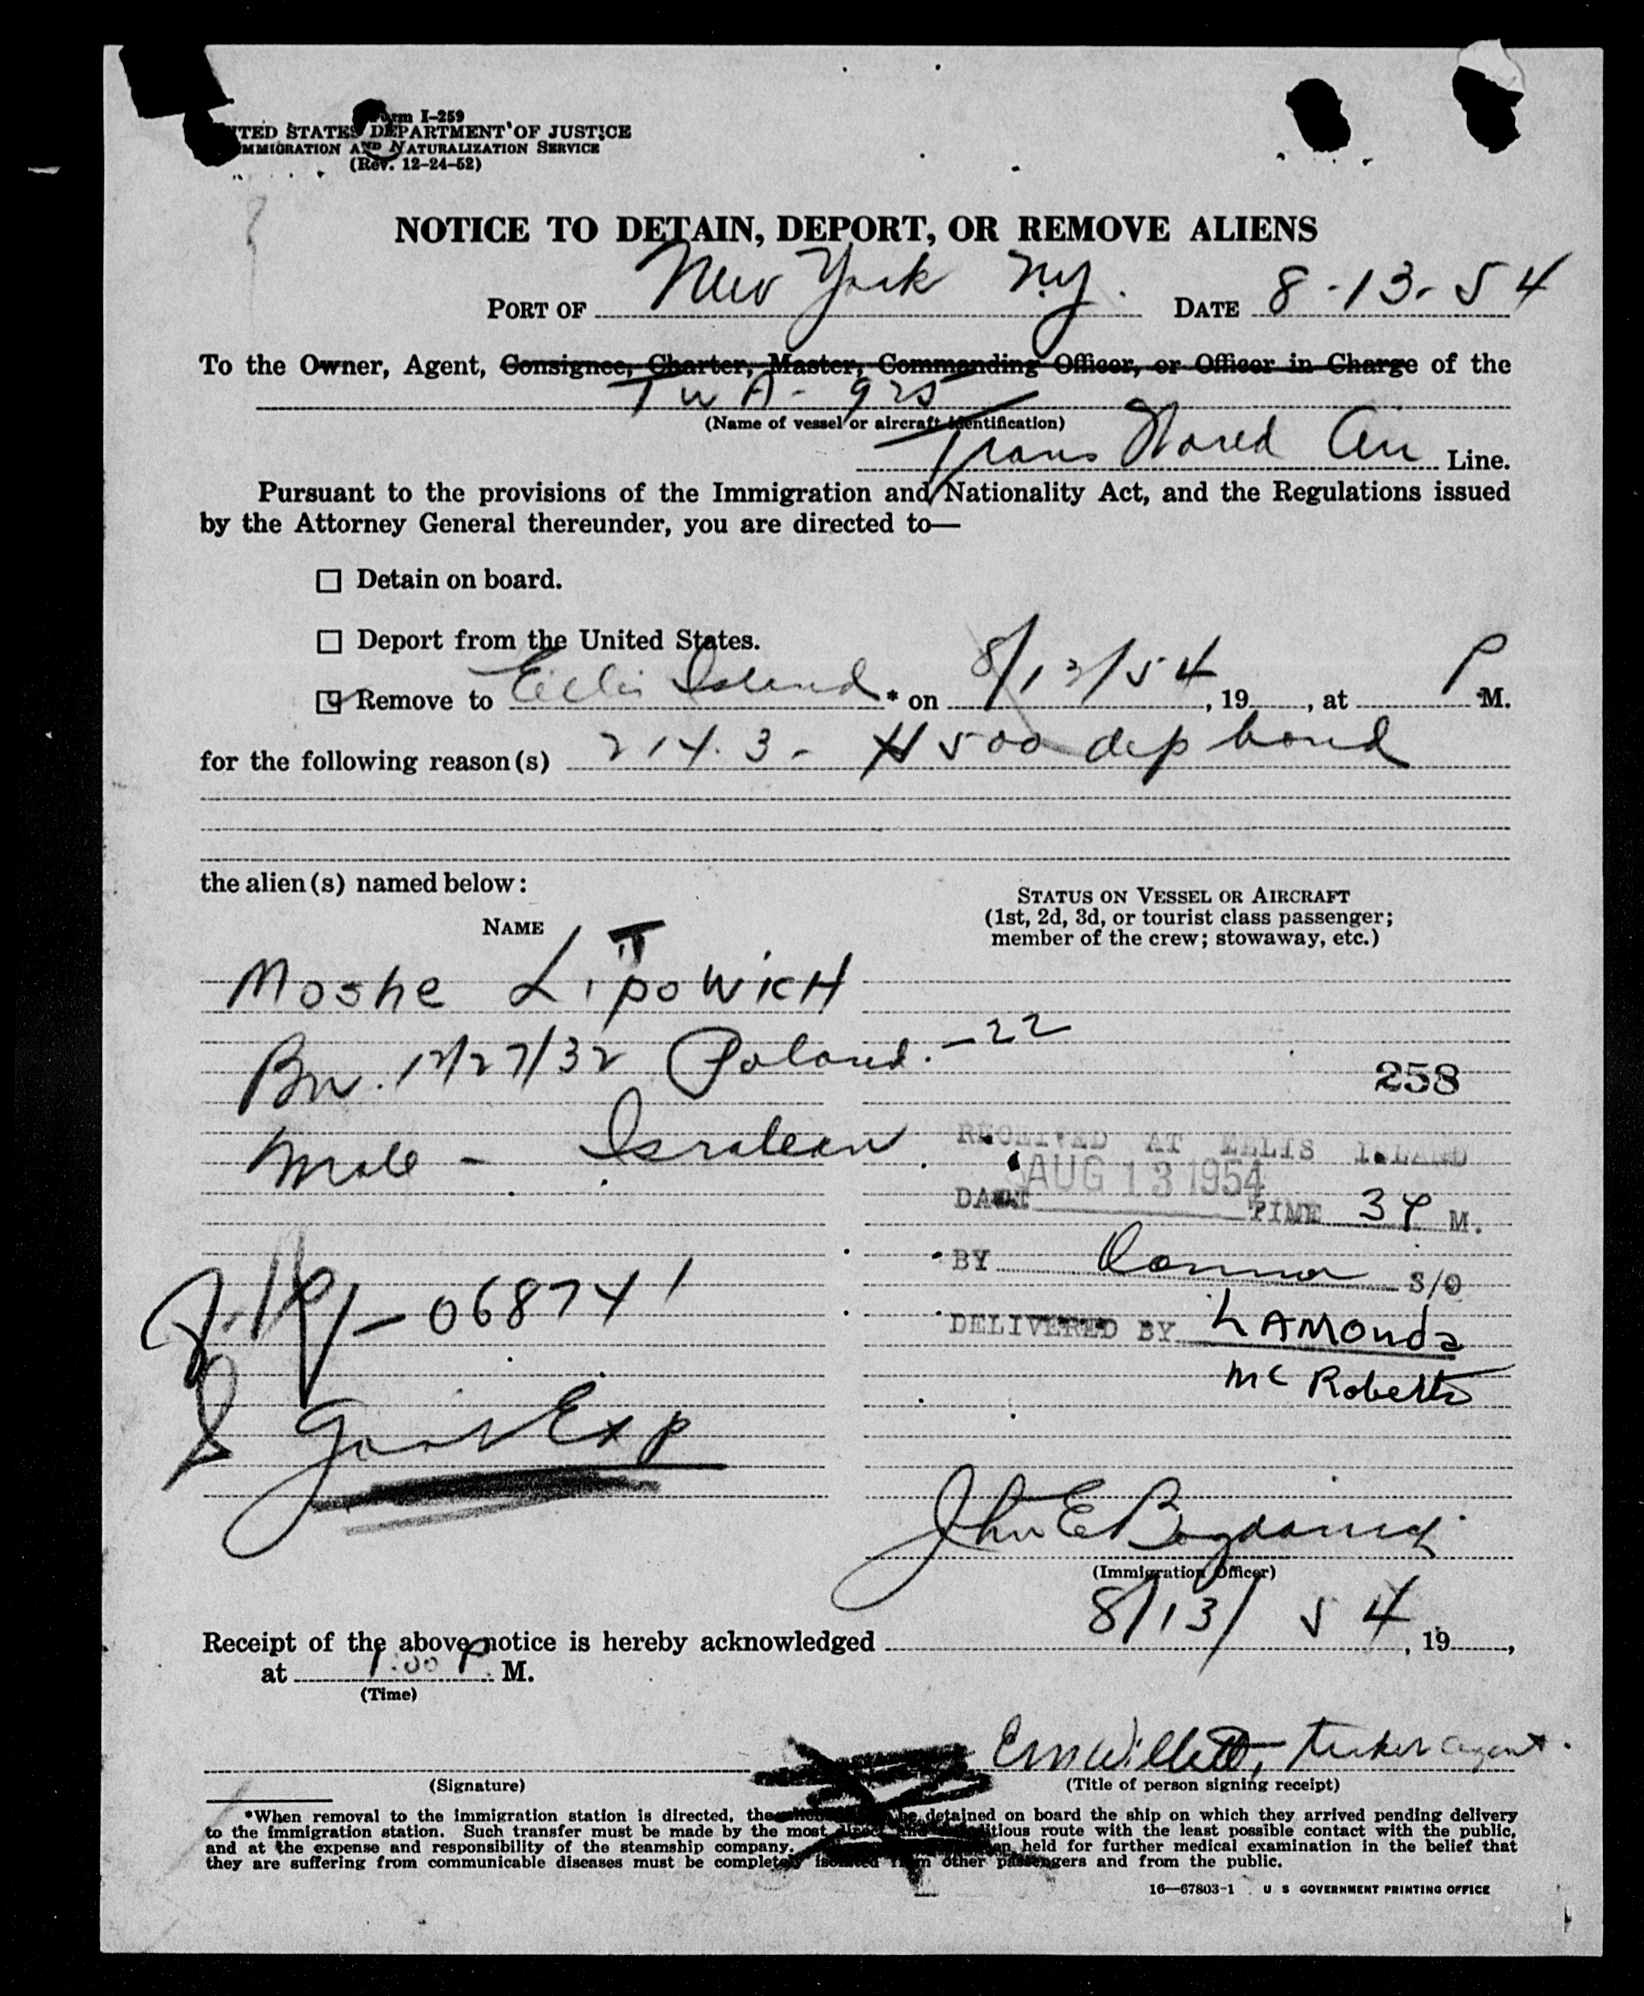 Form I-259
UNITED STATES DEPARTMENT OF JUSTICE
IMMIGRATION AND NATURALIZATION SERVICE
(Rev. 12-24-52)
NOTICE TO DETAIN, DEPORT, OR REMOVE ALIENS
PORT OF New York N.Y. DATE 8-13-54
To the Owner, Agent, Consignee, Charter, Master, Commanding Officer, or Officer in Charge of the
TWA - 925
(Name of vessel or aircraft identification)
Trans World Air Line.
Pursuant to the provisions of the Immigration and Nationality Act, and the Regulations issued
by the Attorney General thereunder, you are directed to—
Detain on board.
Deport from the United States.
Remove to Ellis Island * on 8/13/54, 19 , at P M.
for the following reason(s) 214.3 - $500 dep bond
the alien(s) named below:
NAME
STATUS ON VESSEL OR AIRCRAFT
(1st, 2d, 3d, or tourist class passenger;
member of the crew; stowaway, etc.)
Moshe LipowicH
Bn. 12/27/32 Poland. - 22
258
Male - Isralean
RECEIVED AT ELLIS ISLAND
DATE AUG 13 1954 TIME 3 P M.
BY Connor S/O
- 068741
DELIVERED BY LAMonda
Mc Roberts
Govt Exp
John E
(Immigration Officer)
Receipt of the above notice is hereby acknowledged 8/13/54, 19 ,
at 1:00 P. M.
(Time)
EM Willett, Ticket agent.
(Signature)
(Title of person signing receipt)
*When removal to the immigration station is directed, the be detained on board the ship on which they arrived pending delivery
to the immigration station. Such transfer must be made by the most direct and expeditious route with the least possible contact with the public,
and at the expense and responsibility of the steamship company. held for further medical examination in the belief that
they are suffering from communicable diseases must be completely isolated from other passengers and from the public.
16—67803-1 U S GOVERNMENT PRINTING OFFICE